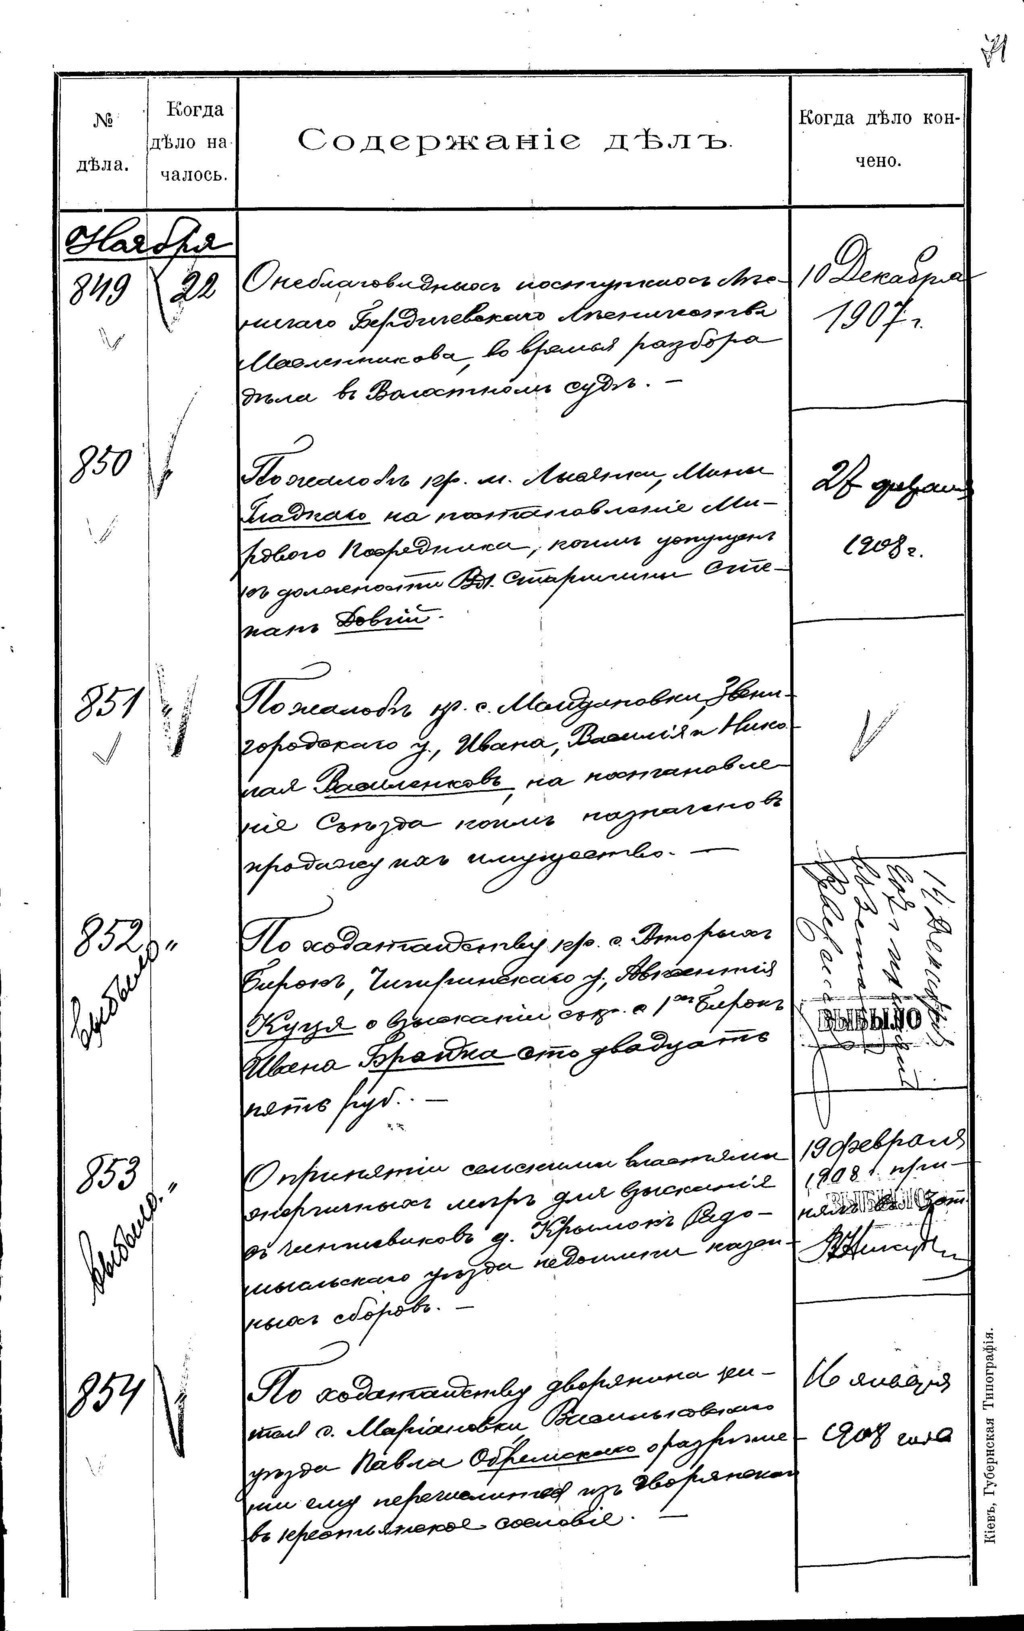 71
№ дѣла.
Когда дѣло на-
чалось.
Содержаніе дѣлъ.
Когда дѣло кон-
чено.
Ноября
849
22
О неблаговидныхъ поступкахъ Лѣс-
ничаго Бердичевскаго Лѣсничества
Масленникова, во время разбора
дѣла въ Волостномъ судѣ. —
10 Декабря
1907 г.
850
"
По жалобѣ кр. м. Лысянки, Мины
Гладкаго на постановленіе Ми-
рового Посредника, коимъ допущенъ
къ должности Вол. Старшины Сте-
панъ Довгій.
27 февраля
1908 г.
851
"
По жалобѣ кр. с. Майдановки, Звени-
городскаго у., Ивана, Василія и Нико-
лая Василенковъ, на постановле-
ніе Съѣзда коимъ назначено въ
продажу ихъ имущество. —
852
"
Выбыло
По ходатайству кр. с. Вторыхъ
Бирокъ, Чигиринскаго у., Авксентія
Куця о взысканіи съ кр. с. 1хъ Бирокъ
Ивана Брайка сто двадцать
пять руб. —
14 Декабря
ВЫБЫЛО
853
"
Выбыло.
О принятіи сельскими властями
энергичныхъ мѣръ для взысканія
съ чиншевиковъ д. Крымокъ Радо-
мысльскаго уѣзда недоимки казен-
ныхъ сборовъ. —
19 февраля
1908 г. при-
ВЫБЫЛО
нялъ
854
"
По ходатайству дворянина жи-
теля с. Маріановки, Васильковскаго
уѣзда Павла Обремскаго о разрѣше-
ніи ему перечислится изъ дворянскаго
въ крестьянское сословіе. —
16 января
1908 года
Кіевъ, Губернская Типографія.